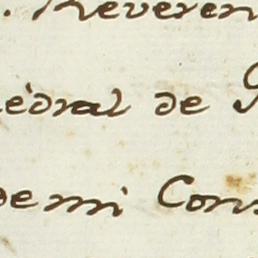 . Reveren
èdral de
de mi Con